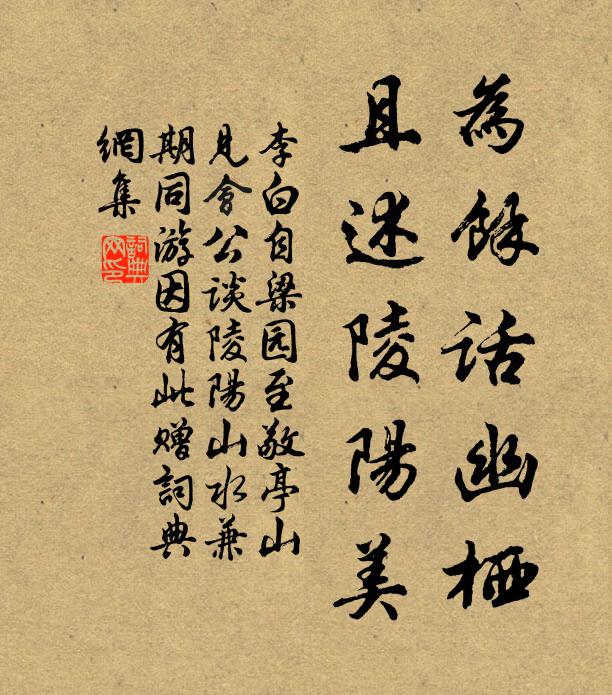 為餘話幽栖
且述陵陽美
李白自梁园至敬亭山
見會公谈陵陽山水兼
期同游因有此赠詞典
網集
詞典網印